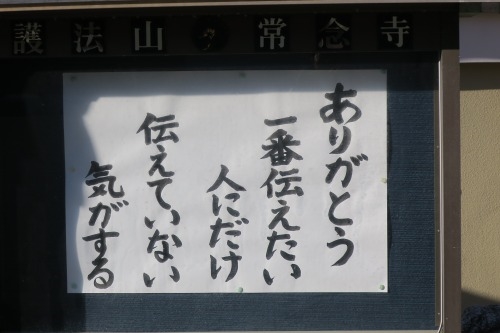 護法山 常念寺
ありがとう
一番伝えたい
人にだけ
伝えていない
気がする